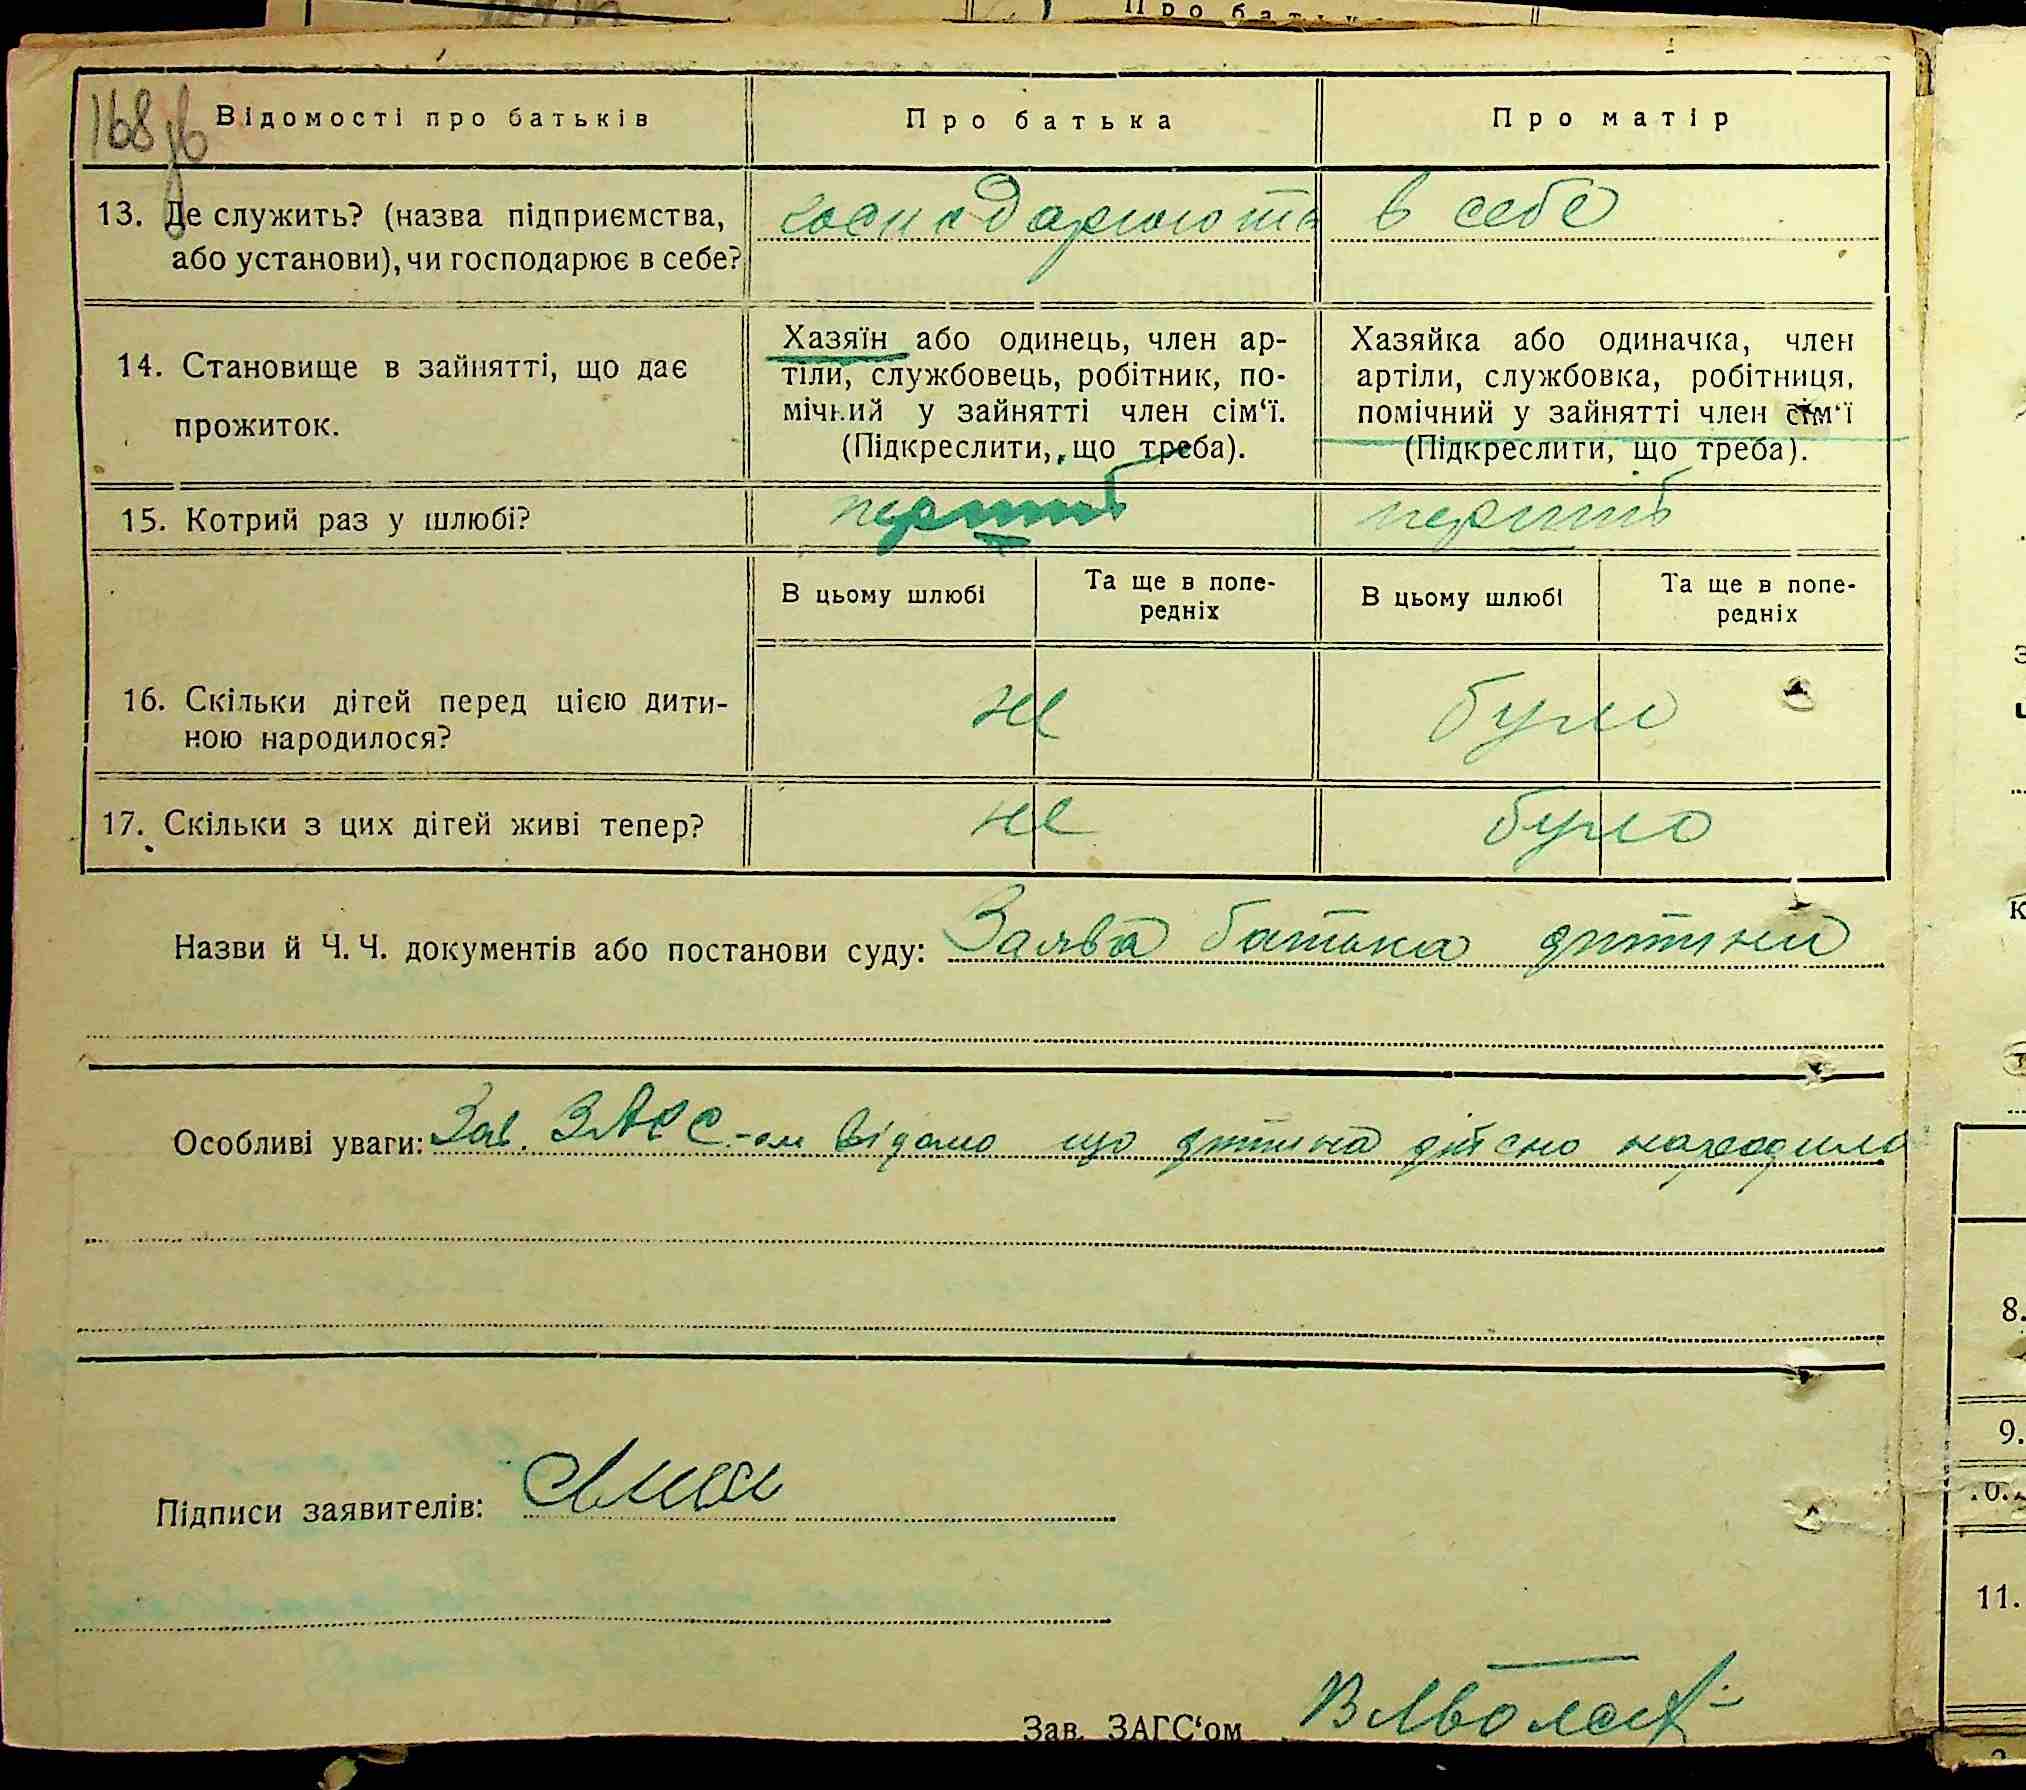 168 зв
Відомості про батьків
Про батька
Про матір
13. Де служить? (назва підприємства,
або установи), чи господарює в себе?
господарюють в себе
14. Становище в зайнятті, що дає
прожиток.
Хазяїн або одинець, член ар-
тіли, службовець, робітник, по-
мічний у зайнятті член сім‘ї.
(Підкреслити, що треба).
Хазяйка або одиначка, член
артіли, службовка, робітниця,
помічний у зайнятті член сім‘ї
(Підкреслити, що треба).
15. Котрий раз у шлюбі?
перший
перший
В цьому шлюбі
Та ще в попе-
редніх
В цьому шлюбі
Та ще в попе-
редніх
16. Скільки дітей перед цією дити-
ною народилося?
не було
17. Скільки з цих дітей живі тепер?
не було
Назви й Ч. Ч. документів або постанови суду: Заява батька дитини
Особливі уваги: Зав. ЗАГС-ом відомо що дитина дійсно народила
Підписи заявителів:
Зав. ЗАГС‘ом
8.
9.
11.